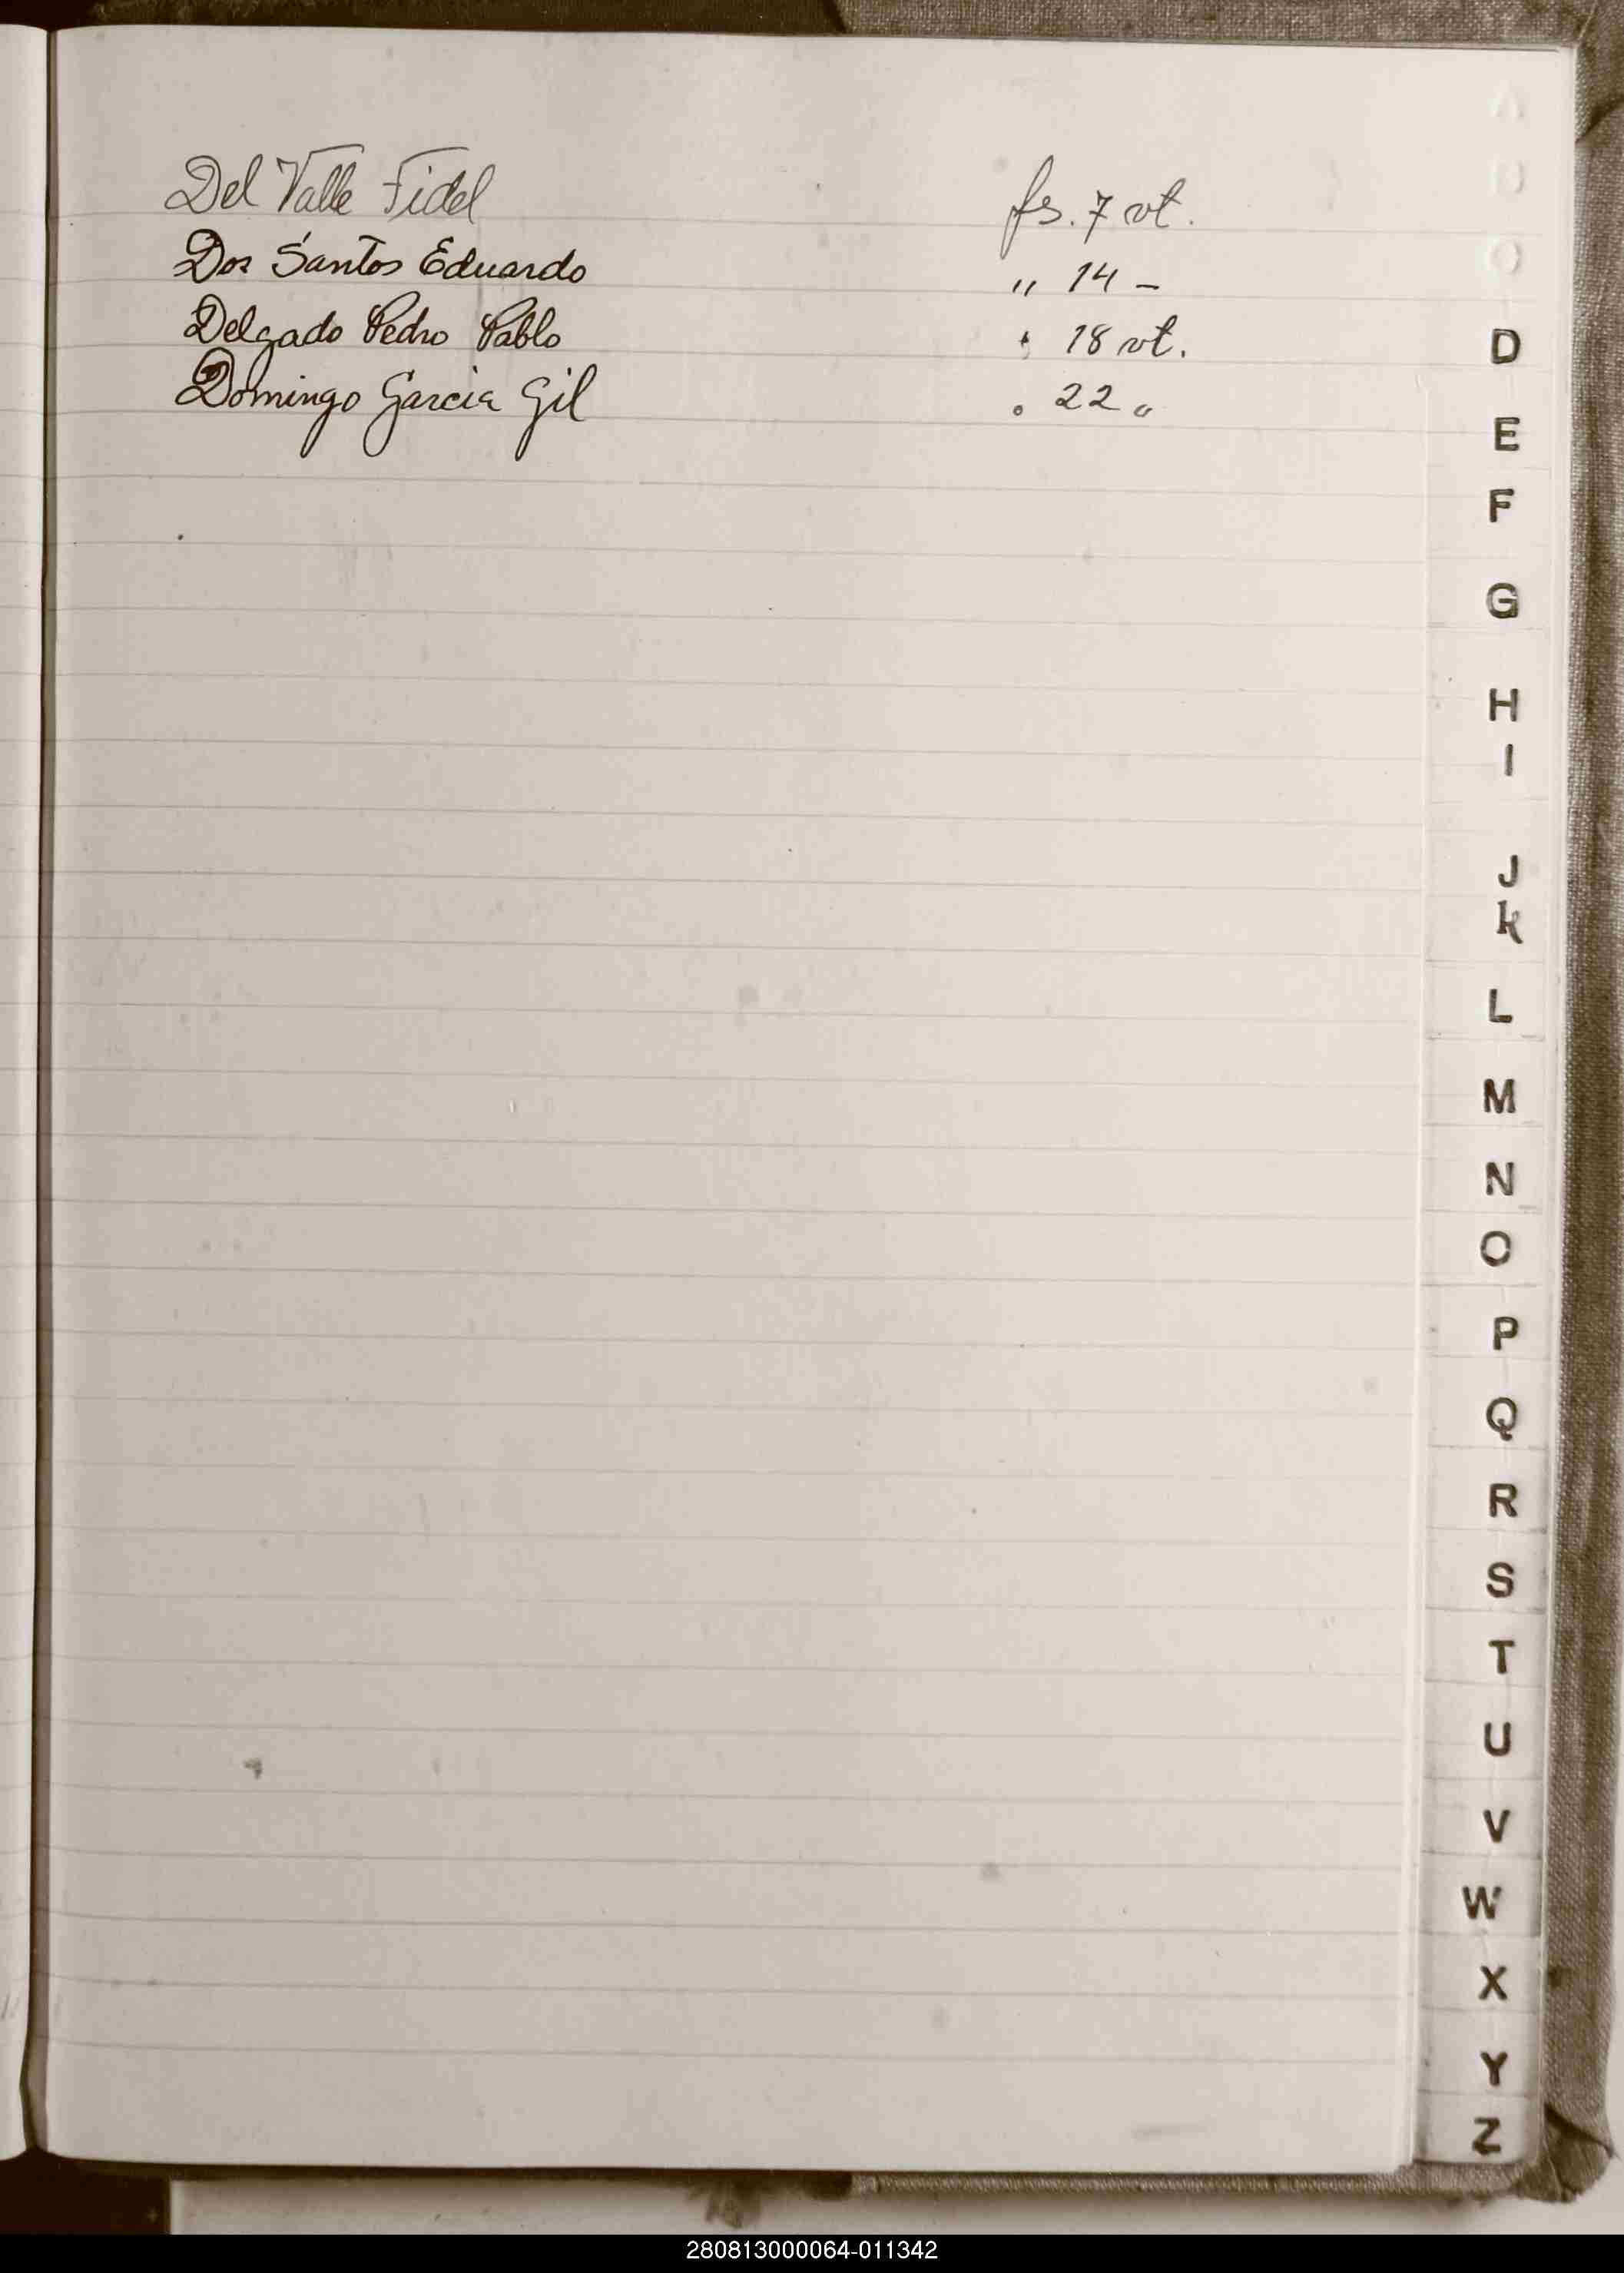 Del Valle Fidel fs. 7 vt.
Dos Santos Eduardo " 14 -
Delgado Pedro Pablo " 18 vt.
Domingo Garcia Gil " 22 "
D
E
F
G
H
I
J
K
L
M
N
O
P
Q
R
S
T
U
V
W
X
Y
Z
280813000064-011342